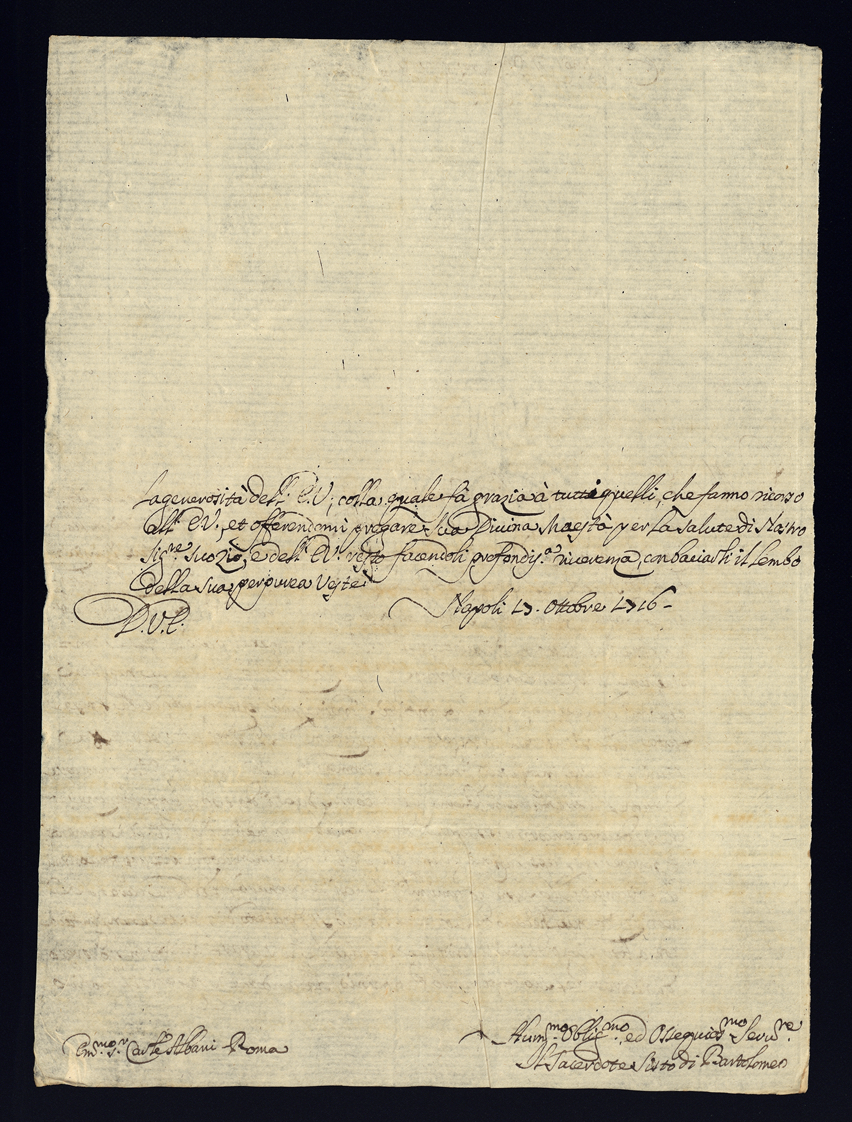 la generosità dell' E.V., colla quale fà grazia à tutti quelli, che fanno ricorso
all' E.V., et offerendomi pregare Sua Divina Maestà per la salute di Nostro
Sig.re Suo Zio, e dell' E.V. resto facendoli profondis.a riverenza, con baciarli il lembo
della Sua porpurea Veste
Napoli 17. Ottobre 1716-
D.V.E.
Hum.mo Oblig.mo ed Ossequios.mo Serv.re
Il Sacerdote Sisto di Bartolomeo
Em.mo S.r Car.le Albani Roma